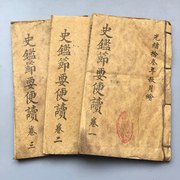 光緒拾叁年貳月吟
史鑑節要便讀 卷一
史鑑節要便讀 卷二
史鑑節要便讀 卷三